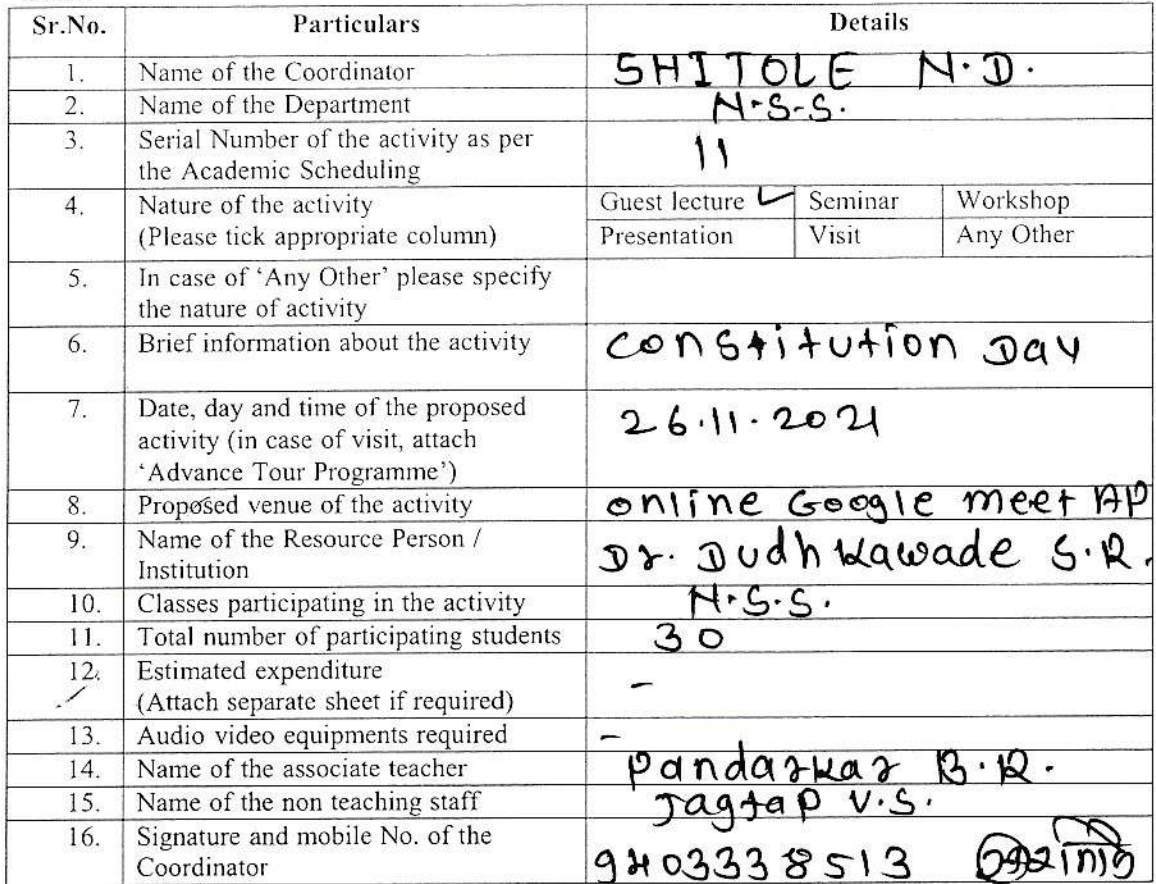 Sr.No. Particulars Details
1. Name of the Coordinator SHITOLE N.D.
2. Name of the Department N.S.S.
3. Serial Number of the activity as per
the Academic Scheduling 11
4. Nature of the activity Guest lecture ✓ Seminar Workshop
(Please tick appropriate column) Presentation Visit Any Other
5. In case of 'Any Other' please specify
the nature of activity
6. Brief information about the activity Constitution Day
7. Date, day and time of the proposed 26.11.2021
activity (in case of visit, attach
'Advance Tour Programme')
8. Proposed venue of the activity online Google meet AP
9. Name of the Resource Person / Dr. Dudhkawade S.R.
Institution
10. Classes participating in the activity N.S.S.
11. Total number of participating students 30
12. Estimated expenditure -
(Attach separate sheet if required)
13. Audio video equipments required -
14. Name of the associate teacher Pandarkar B.R.
15. Name of the non teaching staff Jagtap V.S.
16. Signature and mobile No. of the
Coordinator 9403338513